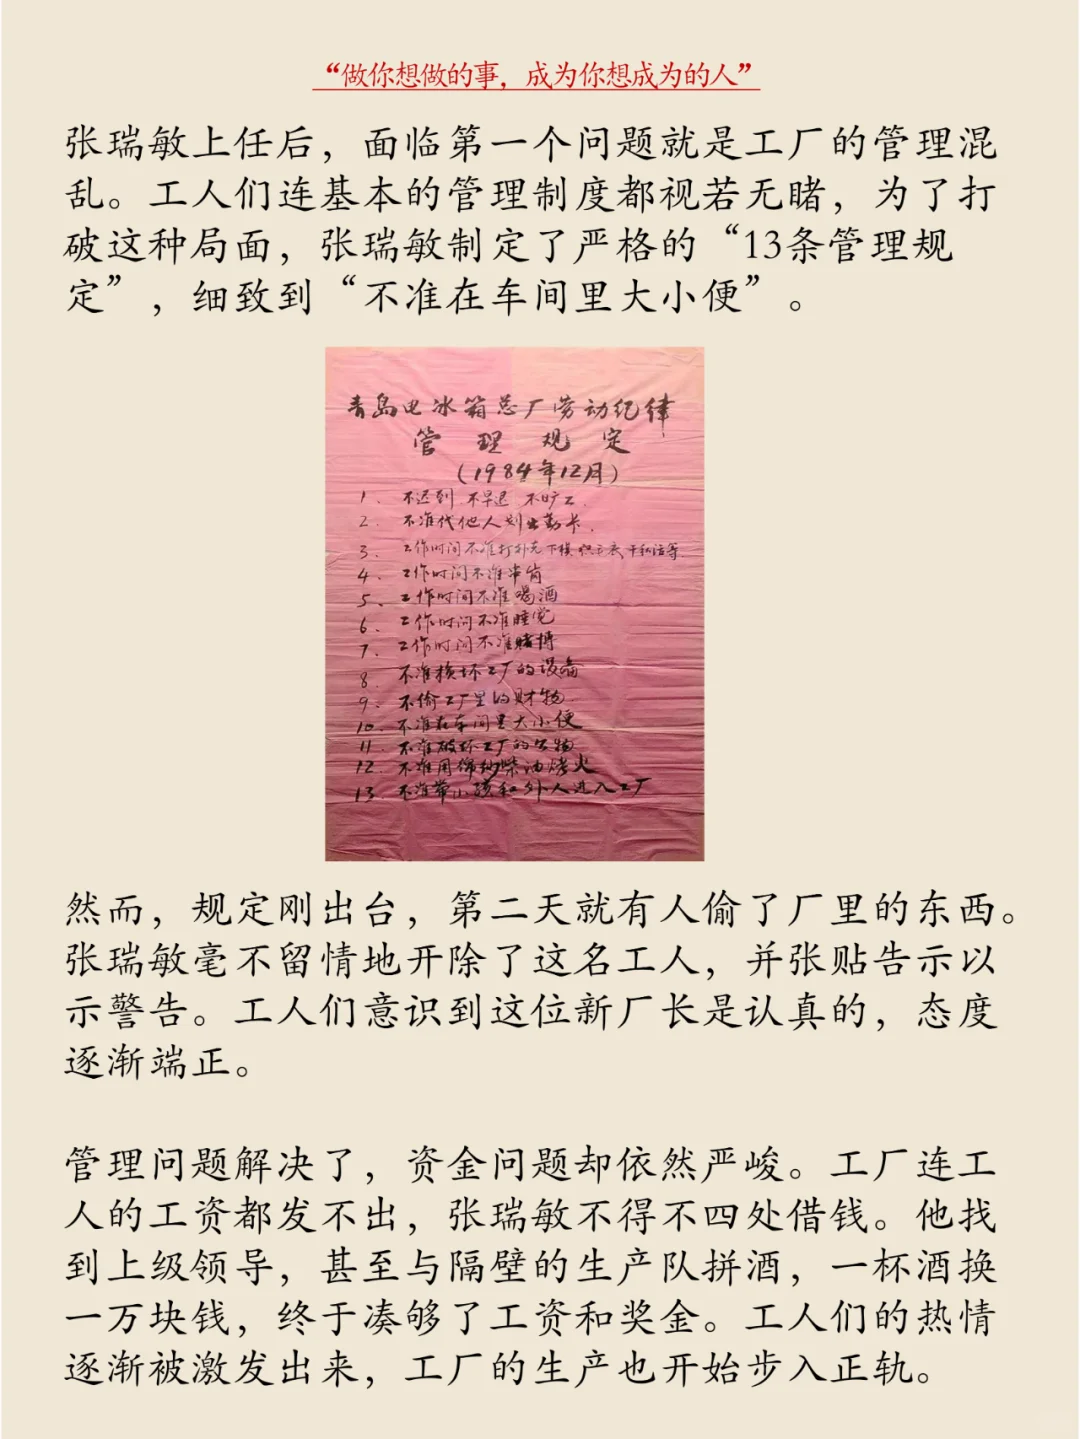 “做你想做的事，成为你想成为的人”
张瑞敏上任后，面临第一个问题就是工厂的管理混
乱。工人们连基本的管理制度都视若无睹，为了打
破这种局面，张瑞敏制定了严格的“13条管理规
定”，细致到“不准在车间里大小便”。
青岛电冰箱总厂劳动纪律
管理规定
(1984年12月)
1. 不迟到 不早退 不旷工.
2. 不准代他人划出勤卡.
3. 工作时间不准打扑克 下棋 织毛衣 干私活等.
4. 工作时间不准串岗
5. 工作时间不准喝酒
6. 工作时间不准睡觉
7. 工作时间不准赌博
8. 不准损坏工厂的设备
9. 不偷工厂里的财物
10. 不准在车间里大小便
11. 不准破坏工厂的公物
12. 不准用棉纱柴油烤火
13 不准带小孩和外人进入工厂
然而，规定刚出台，第二天就有人偷了厂里的东西。
张瑞敏毫不留情地开除了这名工人，并张贴告示以
示警告。工人们意识到这位新厂长是认真的，态度
逐渐端正。
管理问题解决了，资金问题却依然严峻。工厂连工
人的工资都发不出，张瑞敏不得不四处借钱。他找
到上级领导，甚至与隔壁的生产队拼酒，一杯酒换
一万块钱，终于凑够了工资和奖金。工人们的热情
逐渐被激发出来，工厂的生产也开始步入正轨。